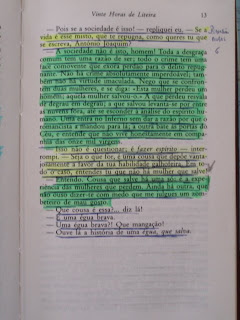 Vinte Horas de Liteira 13
— Pois se a sociedade é isso! — repliquei eu. — Se a
vida é esse muito, que te repugna, como queres tu que
se escreva, António Joaquim?
— A sociedade não é isto, homem! Toda a desgraça
comum tem uma razão de ser; todo o crime tem uma
face comovente que atrai perdão para o delito repu-
gnante. Não há crime absolutamente imperdoável; tam-
bém não há virtude imaculada. Nego que se confron-
tem duas mulheres, e se diga: «Esta mulher perdeu um
homem; aquela mulher salvou-o.» A que perdeu desceu
de degrau em degrau; a que salvou levanta-se por entre
as nuvens fora, até se esconder à análise do espírito hu-
mano. Uma entra no Inferno sem dar a razão por que o
romancista a mandou para lá; a outra bate às portas do
Céu, e entende que vão viver honestamente em compa-
nhia das onze mil virgens.
— Isso não é questionar; é fazer espírito — inter-
rompi. — Será o que for, é uma cousa que depõe vanta-
josamente a favor da tua habilidade cabeceira. Em to-
do o caso, entendes tu que não há mulher que salve?
— Entendo. Cousa que salve há uma só: é a expe-
riência das mulheres que perdem. Ainda há outra, que
não ouso dizer-te com medo que me julgues um zom-
beteiro de mau gosto.
— Que cousa é essa?... diz lá!
— É uma égua brava.
— Uma égua brava?! Que mangação!
— Ouve lá a história de uma égua, que salva.